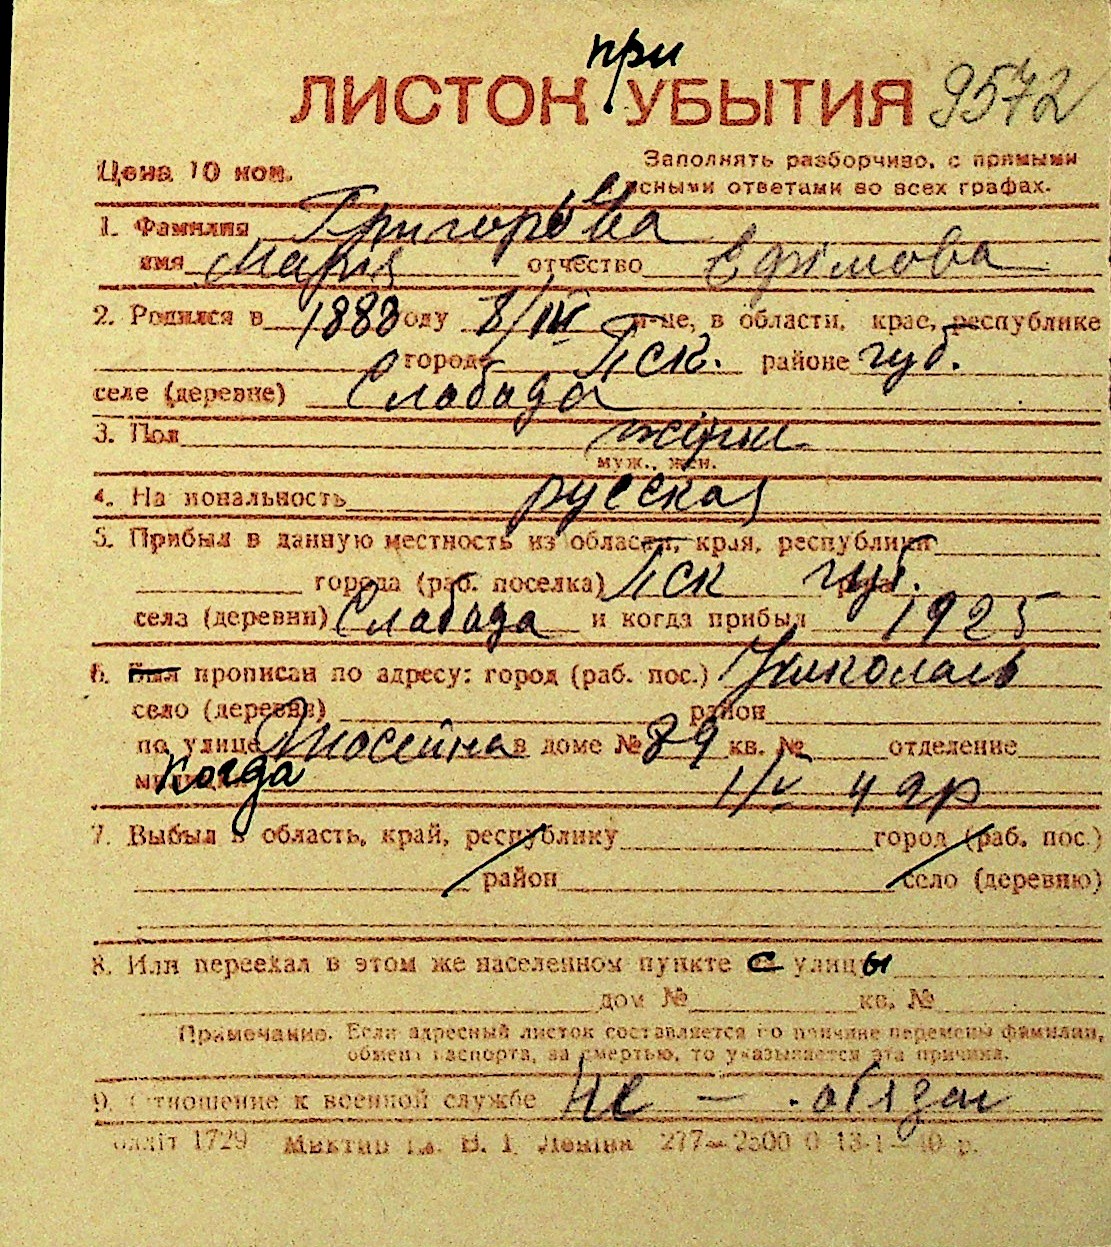 при
ЛИСТОК УБЫТИЯ 9572
Цена 10 коп.
Заполнять разборчиво, с прямыми
ясными ответами во всех графах.
1. Фамилия Григорьева
имя Мария отчество Ефимова
2. Родился в 1880 году 8/IV м-це, в области, крае, республике
городе Пск. районе губ.
селе (деревне) Слабада
3. Пол
муж., жен.
4. Национальность русская
5. Прибыл в данную местность из области, края, республики
города (раб. поселка) Пск губ.
села (деревни) Слабада и когда прибыл 1925
6. Был прописан по адресу: город (раб. пос.) Николаев
село (деревня) район
по улице в доме № 89 кв. № отделение
Когда
7. Выбыл в область, край, республику город (раб. пос.)
район село (деревню)
8. Или переехал в этом же населенном пункте с улицы
дом № кв. №
Примечание. Если адресный листок составляется по причине перемены фамилии,
обмена паспорта, за смертью, то указывается эта причина.
9. Отношение к военной службе Не — обязан
1729 277—2500 0 13-1—40 р.